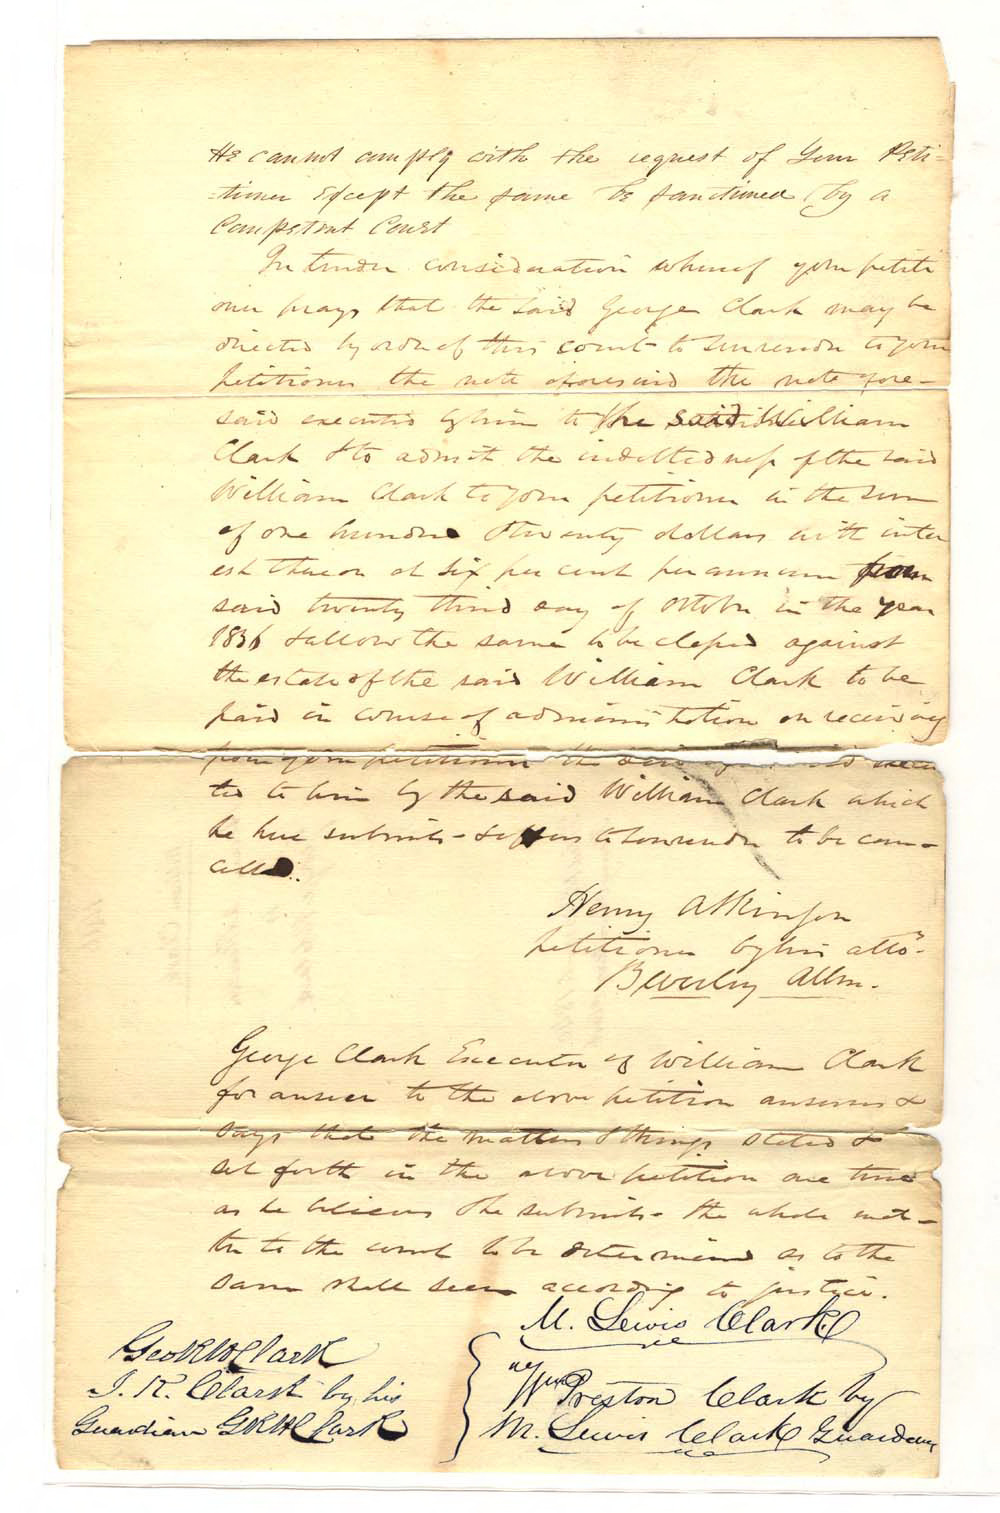 He cannot comply with the request of Your Peti-
-tioner Except the same be sanctioned by a
Competent Court
In tender consideration whereof your petiti
oner prays that the said George Clark may be
directed by order of this court to surrender to your
petitioner the note aforesaid the note afore-
said executed by him to the said William
Clark & to admit the indebtedness of the said
William Clark to your petitioner in the sum
of one hundred & twenty dollars with inter
est thereon at six per cent per annum from
said twenty third day of October in the year
1836 & allow the same to be classed against
the estate of the said William Clark to be
paid in course of administration on receiving
from your petitioner the said
ted to him by the said William Clark which
he here submits & offers to surrender to be can-
celled.
Henry Atkinson
petitioner by his atto.
Beverley Allen.
George Clark Executor of William Clark
for answer to the above petition answers &
says that the matters & things stated &
set forth in the above petition are true
as he believes & he submits the whole mat-
ter to the court to be determined as to the
same shall seem according to justice.
M. Lewis Clark
Geo R H Clark
Wm Preston Clark by
J. K. Clark by his
M. Lewis Clark Guardian
Guardian G R H Clark